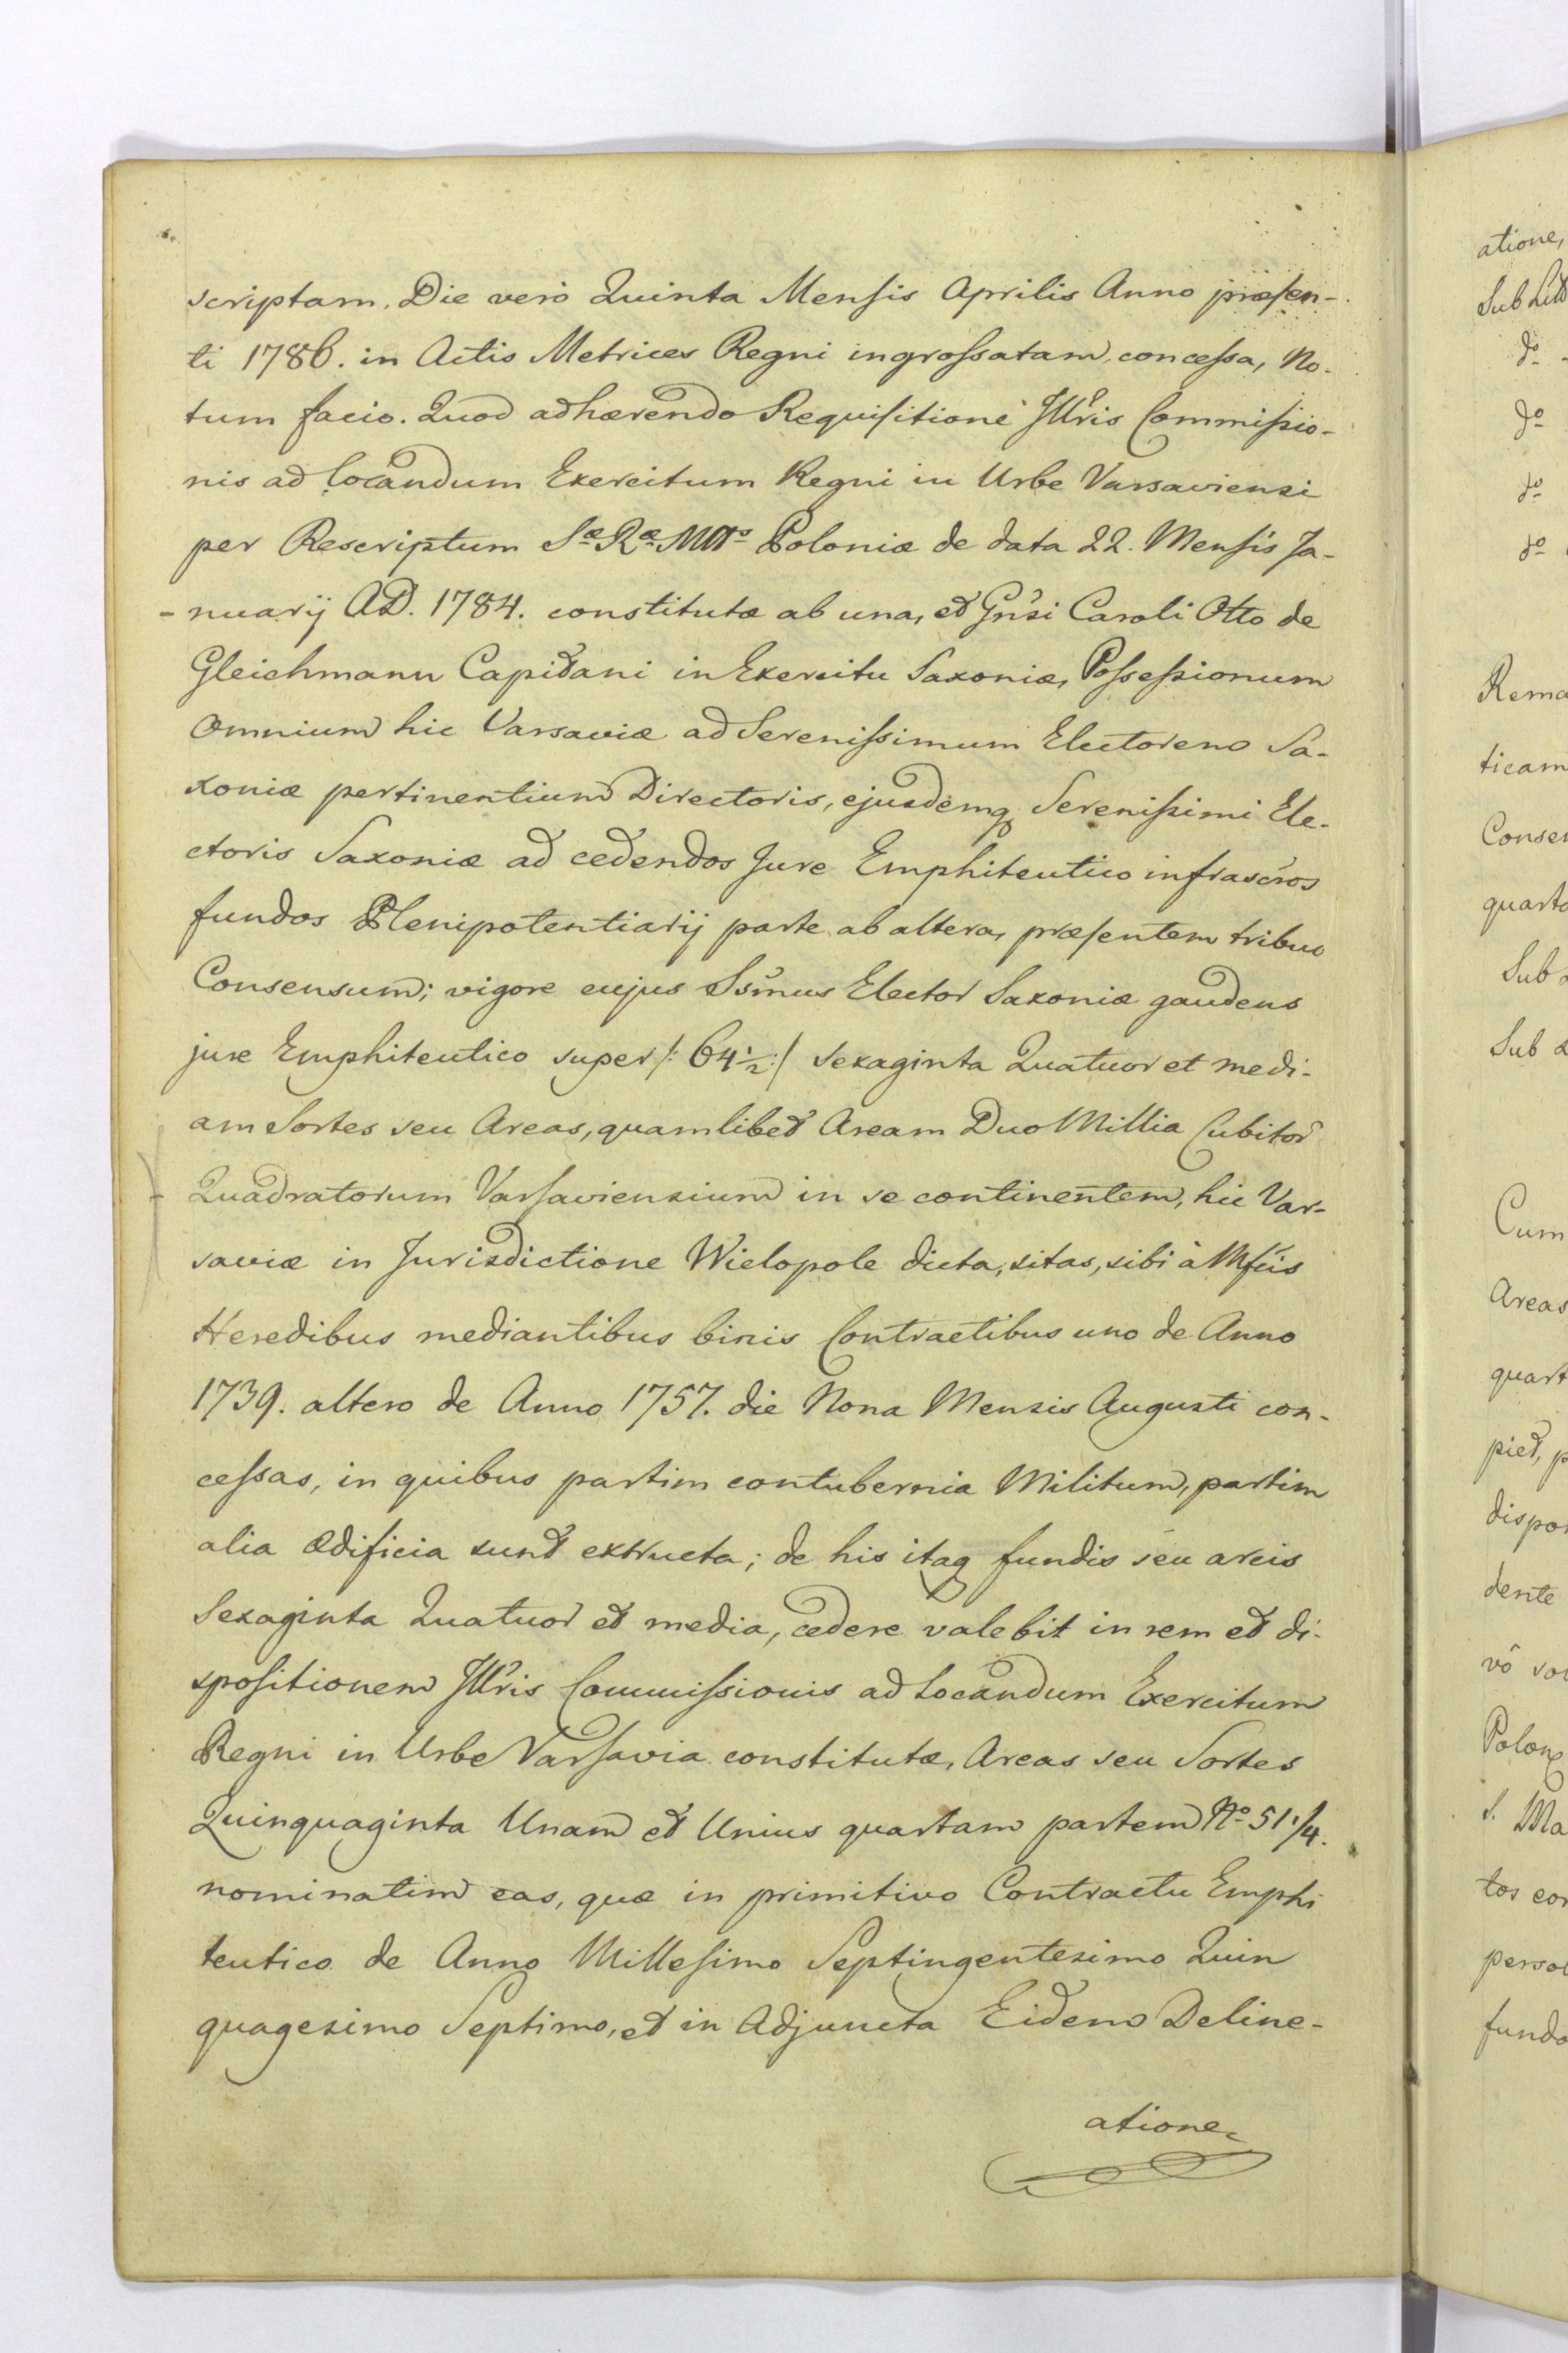 scriptam. Die verò Quinta Mensis Aprilis Anno præsen-
ti 1786. in Actis Metrices Regni ingrossatam, concessa, No-
tum facio. Quod adhærendo Requisitioni Illŕis Commissio-
nis ad locandum Exercitum Regni in Urbe Varsaviensi
per Rescriptum Sæ Ræ Mttis Poloniæ de data 22. Mensis Ja-
-nuarij AD. 1784. constitutæ ab una, et Gńsi Caroli Otto de
Gleichmann Capitani in Exercitu Saxoniæ, Possessionum
omnium hic Varsaviæ ad Serenissimum Electorem Sa-
xoniæ pertinentium Directoris, ejusdemq Serenissimi Ele-
ctoris Saxoniæ ad cedendos Jure Emphiteutico infrascŕos
fundos Plenipotentiarij parte ab altera, præsentem tribuo
Consensum; vigore cujus Ssm̃us Elector Saxoniæ gaudens
jure Emphiteutico super /: 64 1/2 :/ sexaginta Quatuor et medi-
am Sortes seu Areas, quamlibet Aream Duo Millia Cubitor̃
Quadratorum Varsaviensium in se continentem, hic Var-
saviæ in Jurisdictione Wielopole dicta, sitas, sibi à Mfcis
Heredibus mediantibus binis Contractibus uno de Anno
1739. altero de Anno 1757. die Nona Mensis Augusti con-
cessas, in quibus partim contubernia Militum, partim
alia ædificia sunt extructa; de his itaq fundis seu areis
Sexaginta Quatuor et media, cedere valebit in rem et di-
spositionem Illŕis Commissionis ad Locandum Exercitum
Regni in Urbe Varsavia constitutæ, Areas seu Sortes
Quinquaginta Unam et Unius quartam partem No 51 1/4.
nominatim eas, quæ in primitivo Contractu Emphi
teutico de Anno Millesimo Septingentesimo Quin
quagesimo Septimo, et in Adjuncta Eidem Deline-
atione,
atione,
Sub Litt
do
do
do
do
Rema
ticam
Conse
quart
Sub
Sub
Cum
Areas
quart
piet, p
dispo
dente
vô so
Polon
S. Ma
tos con
persol
fundo